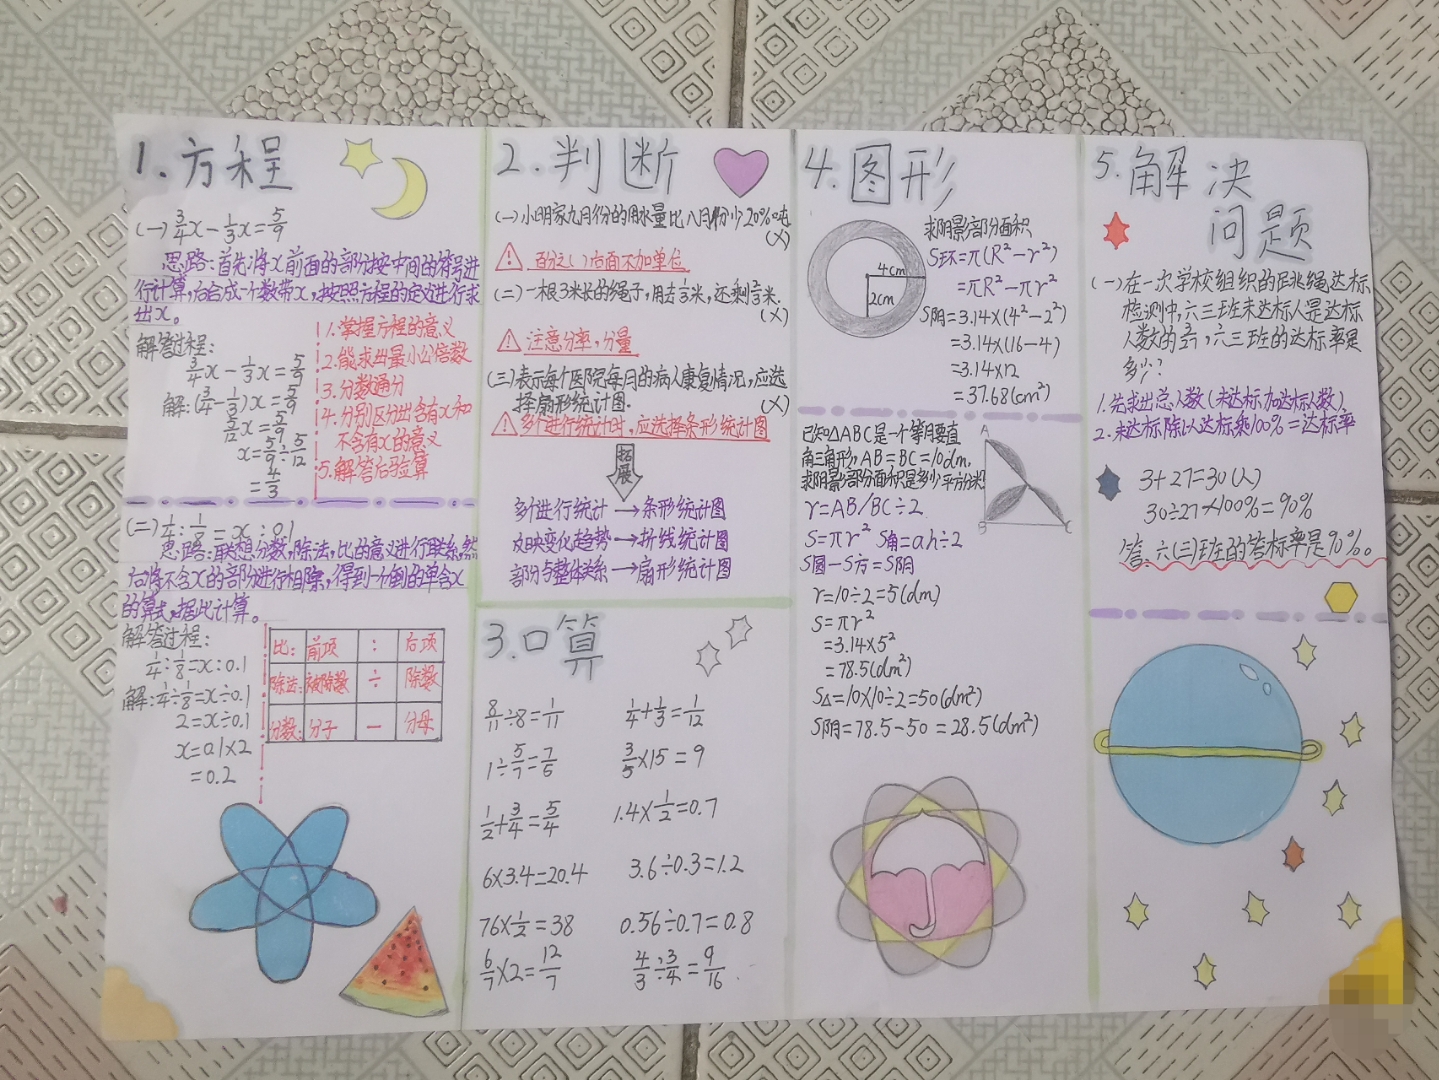 1.方程
(一) 3/4x-1/3x=5/9
思路:首先将x前面的部分按中间的符号进
行计算,后合成一个数带x,按照方程的定义进行求
出x。
解答过程:
3/4x-1/3x=5/9
解:(3/4-1/3)x=5/9
5/12x=5/9
x=5/9÷5/12
=4/3
1.掌握方程的意义
2.能求出最小公倍数
3.分数通分
4.分别区分出含有x和
不含有x的意义
5.解答后验算
(二) 1/4:1/8=x:0.1
思路:联想分数,除法,比的意义进行联系,然
后将不含x的部分进行相除,得到一个倒的单含x
的算式,据此计算。
解答过程:
1/4:1/8=x:0.1
解:1/4÷1/8=x÷0.1
2=x÷0.1
x=0.1×2
=0.2
比: 前项 : 后项
除法: 被除数 ÷ 除数
分数: 分子 — 分母
2.判断
(一)小明家九月份的用水量比八月份少20%吨
(×)
百分之( )后面不加单位
(二)一根3米长的绳子,用去1/3米,还剩米.
(×)
注意分率,分量
(三)表示每个医院每月的病人康复情况,应选
择扇形统计图.
(×)
多个进行统计时,应选择条形统计图
拓展
多个进行统计→条形统计图
反映变化趋势→折线统计图
部分与整体关系→扇形统计图
3.口算
8/11÷8=1/11 1/4+1/3=1/12
1÷5/7=7/5 3/5×15=9
1/2+3/4=5/4 1.4×1/2=0.7
6×3.4=20.4 3.6÷0.3=1.2
76×1/2=38 0.56÷0.7=0.8
6/7×2=12/7 4/3÷3/4=9/16
4.图形
4cm
2cm
求阴影部分面积
S环=π(R²-r²)
=πR²-πr²
S阴=3.14×(4²-2²)
=3.14×(16-4)
=3.14×12
=37.68(cm²)
已知△ABC是一个等腰直
角三角形,AB=BC=10dm,
求阴影部分面积是多少平方分米?
A
B
C
r=AB/BC÷2
S=πr² S角=ah÷2
S圆-S方=S阴
r=10÷2=5(dm)
S=πr²
=3.14×5²
=78.5(dm²)
S△=10×10÷2=50(dm²)
S阴=78.5-50=28.5(dm²)
5.解决
问题
(一)在一次学校组织的跳绳达标
检测中,六三班未达标人是达标
人数的,六三班的达标率是
多少?
1.先求出总人数(未达标加达标人数)
2.未达标除以达标乘100%=达标率
3+27=30(人)
30÷27×100%=90%
答:六(三)班的答标率是90%。